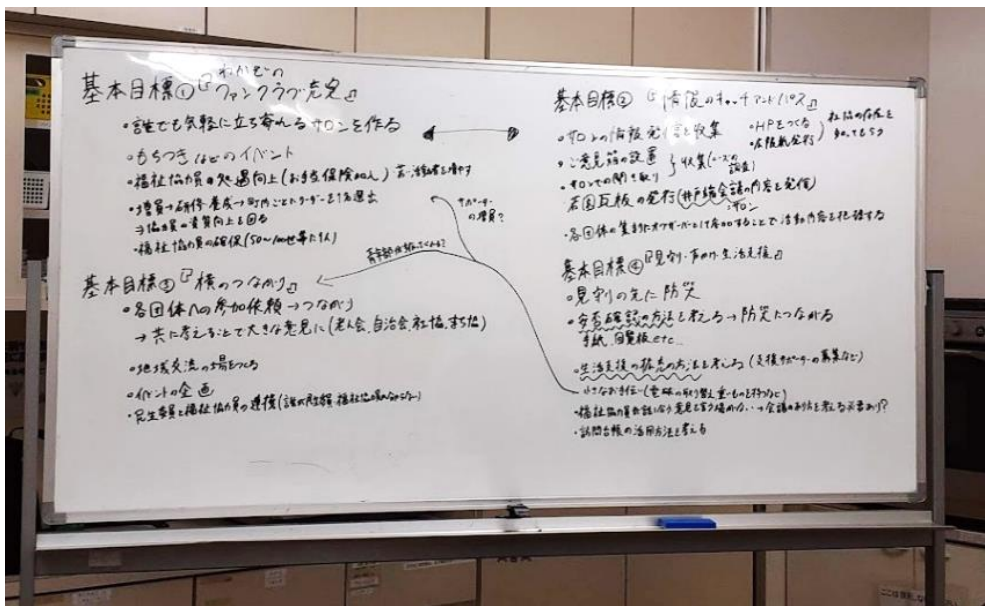 基本目標①『わかぞのファンクラブ充実』
・誰でも気軽に立ち寄れるサロンを作る
・もちつきなどのイベント
・福祉協力員の処遇向上(お手当、保険加入)
・増員→研修・養成→町内ごとにリーダーを1名選出
⇒協力員の資質向上を図る
・福祉協力員の確保(50〜100世帯に1人)
サポーターの増員?
基本目標③『横のつながり』
・各団体への参加依頼→つながり
→共に考えることで大きな意見に(老人会、自治会、社協、まち協)
・地域交流の場をつくる
・イベントの企画
・民生委員と福祉協力員の連携
基本目標②『情報のキャッチアンドパス』
・サロンの情報発信と収集
・ご意見箱の設置
・サロンでの聞き取り
収集(ニーズの調査)
・HPをつくる
・広報紙発行
社協の存在を知ってもらう
若園瓦板の発行(井戸端会議の内容を発信)
:サロン
・各団体の集まりにオブザーバーとして参加することで活動内容を把握する
基本目標④『見守り・声かけ・生活支援』
・見守りの先に防災
・安否確認の方法を考える→防災につながる
手紙、回覧板etc...
・生活支援の拡充の方法を考える(支援サポーターの募集など)
小さなお手伝い(電球の取り替え、重いものを持つなど)
・訪問台帳の活用方法を考える